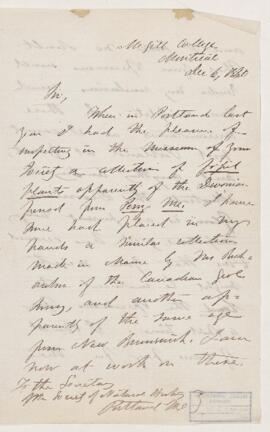 McGill College
Montreal
Dec 6, 1860
Sir,
When in Portland last
year I had the pleasure of
inspecting in the Museum of your
Society a collection of fossil
plants apparently of the Devonian
period from Perry Me. I have
since had placed in my
hands a similar collection
made in Maine by Mr Rich-
ardson of the Canadian Geol
Survey, and another ap-
parently of the same age
from New Brunswick. I am
now at work on these.
To the Secretary
Nat History
Portland Me